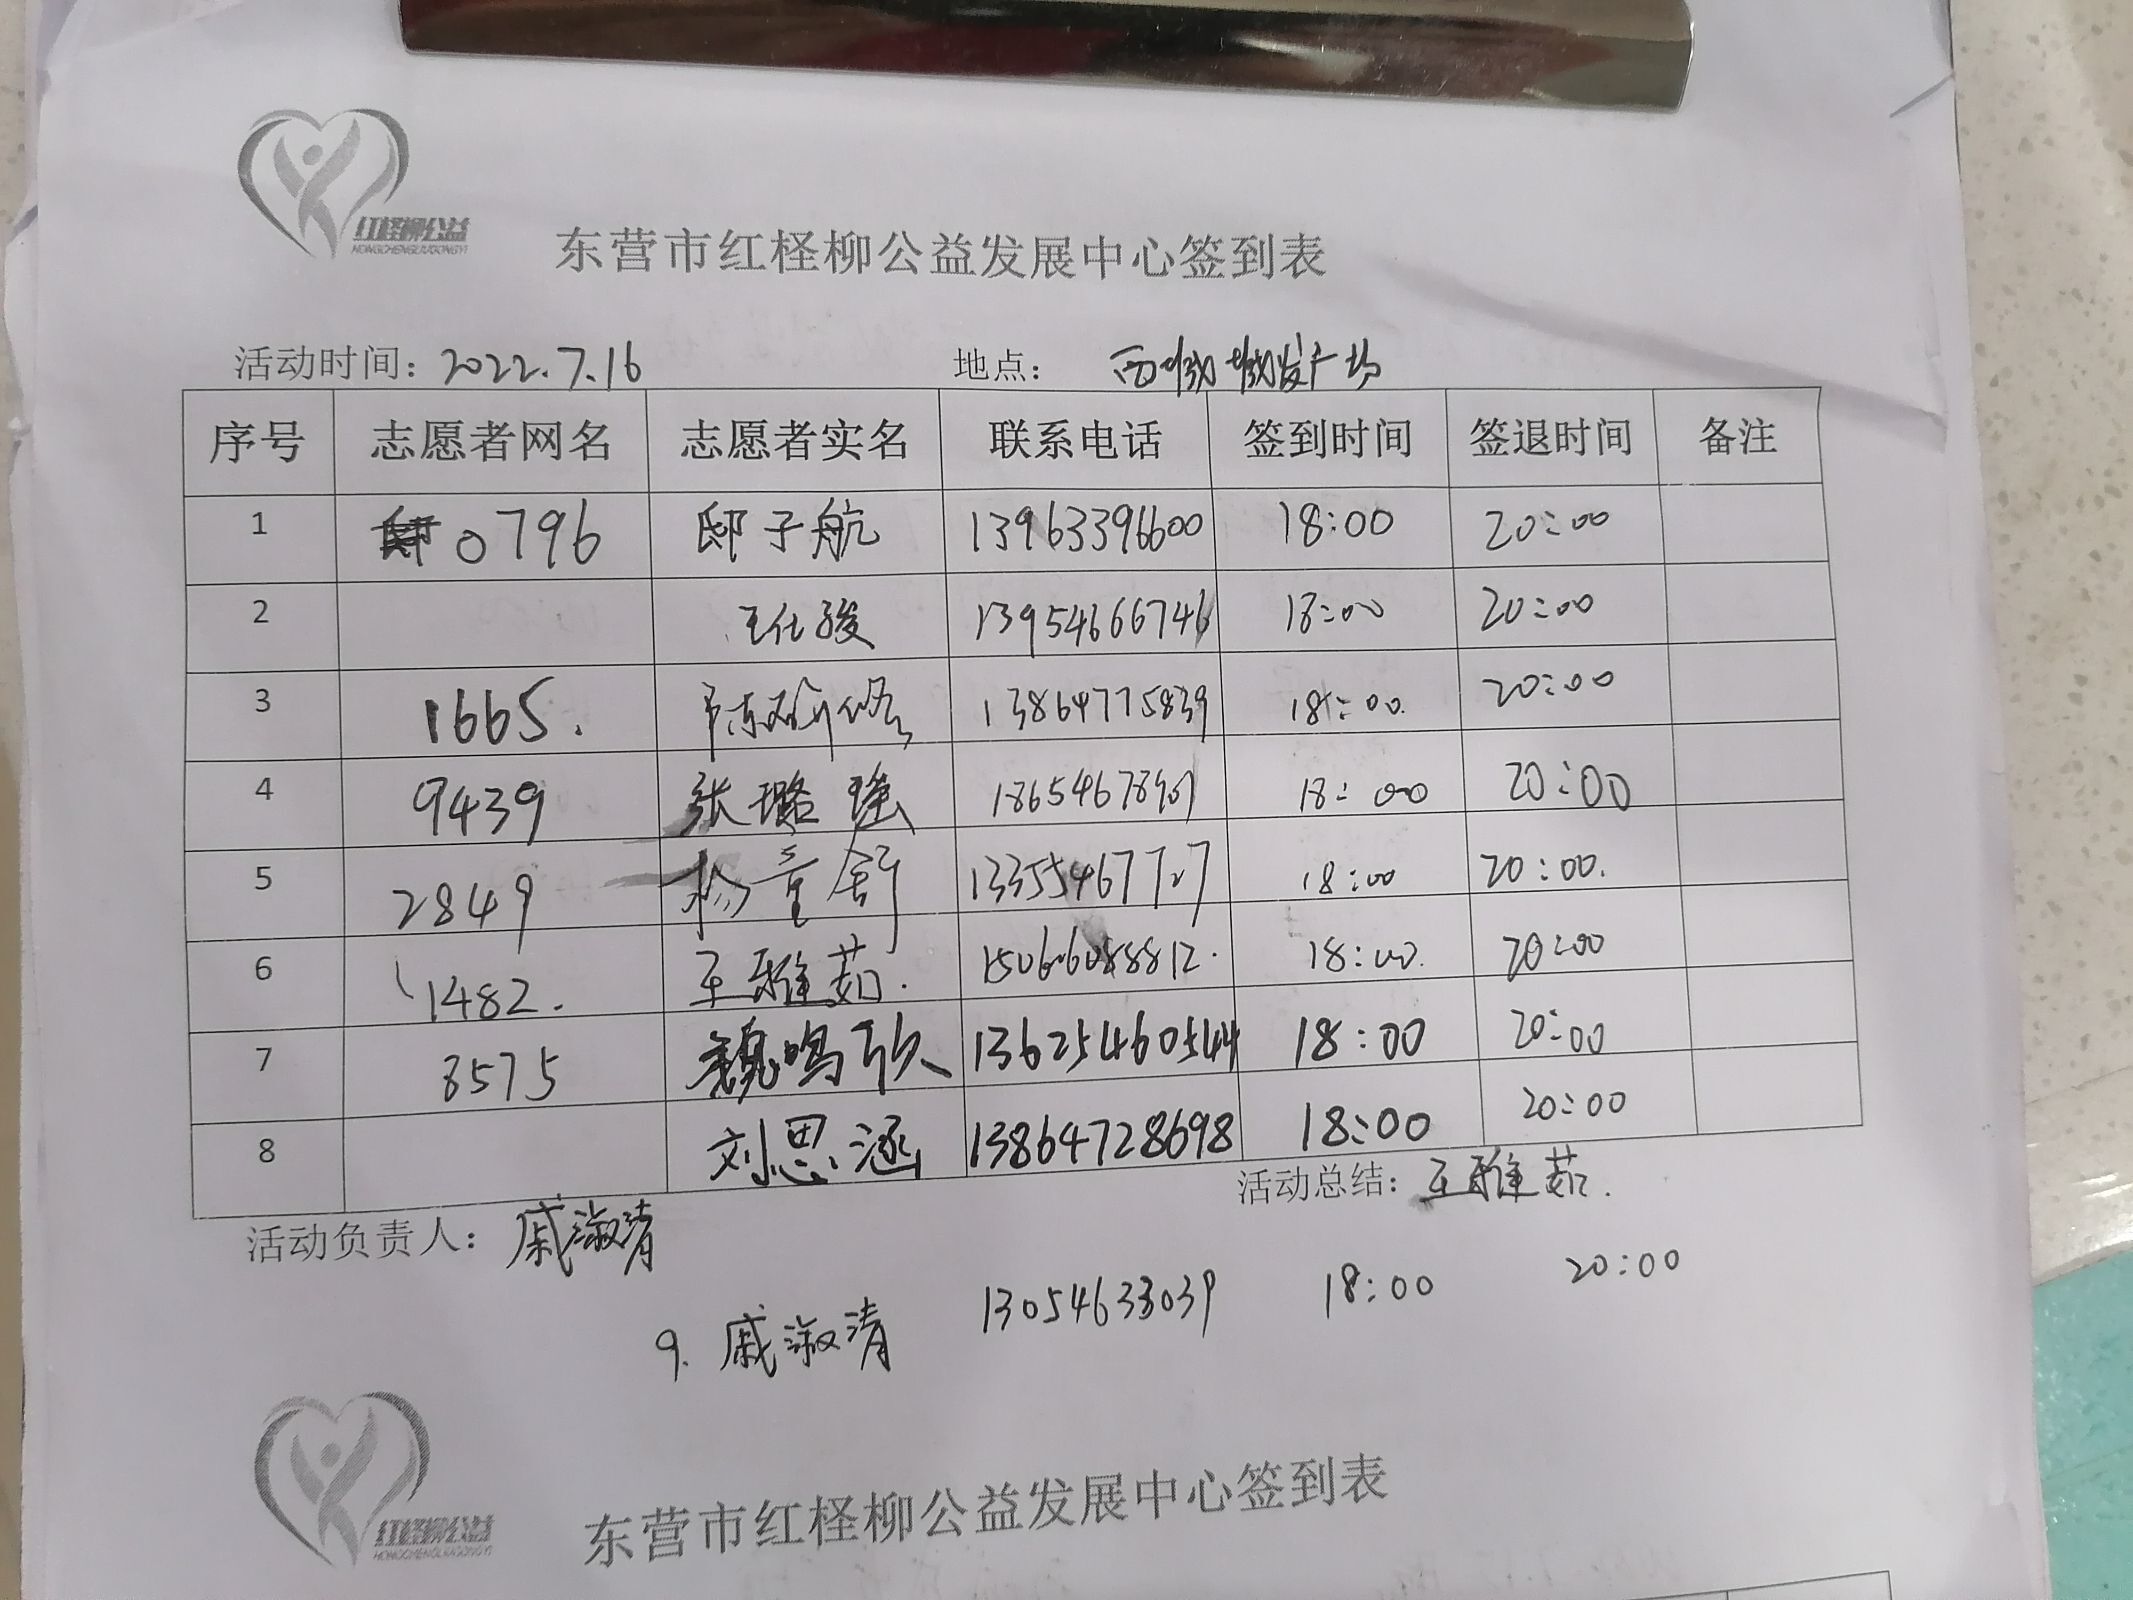 红柽柳公益
HONGCHENGLIUGONGYI
东营市红柽柳公益发展中心签到表
活动时间：2022.7.16 地点： 西城城发广场
序号 志愿者网名 志愿者实名 联系电话 签到时间 签退时间 备注
1 0796 邸子航 13963396600 18:00 20:00
2 王仕骏 13954666746 18:00 20:00
3 1665. 陈 13864775839 18:00. 20:00
4 9439 张璐瑶 18:00 20:00
5 2849 杨童舒 13355467727 18:00 20:00.
6 1482. 王雅茹. 15066088812. 18:00. 20:00
7 8575 魏鸣歌 13625460544 18:00 20:00
8 刘思涵 13864728698 18:00 20:00
活动负责人：戚淑清 活动总结：王雅茹.
9. 戚淑清 13054633039 18:00 20:00
红柽柳公益
HONGCHENGLIUGONGYI
东营市红柽柳公益发展中心签到表